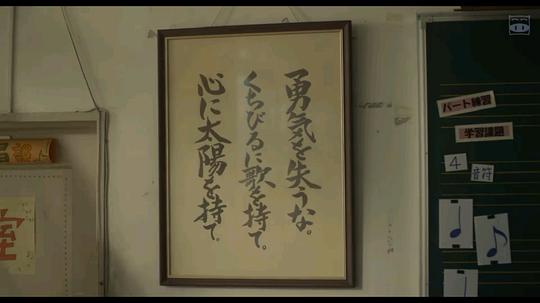 勇気を失うな。
くちびるに歌を持て。
心に太陽を持て。
パート練習
学習課題
4
音符
室